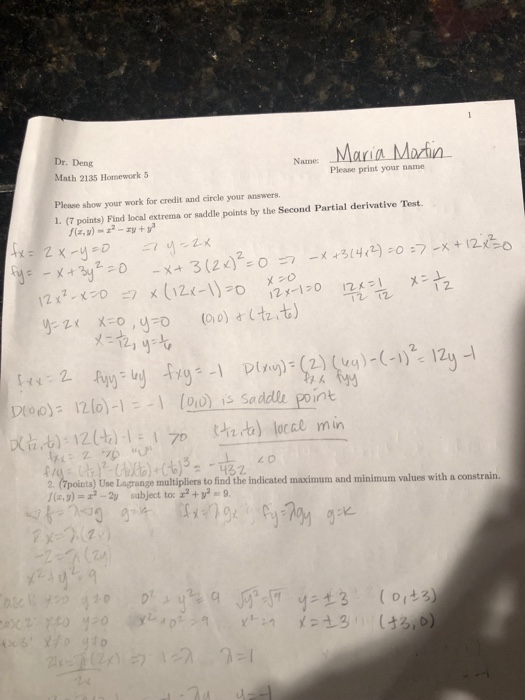 1
Dr. Deng
Name: Maria Martin
Math 2135 Homework 5
Please print your name
Please show your work for credit and circle your answers.
1. (7 points) Find local extrema or saddle points by the Second Partial derivative Test.
f(x, y) = x² − xy + y³
fx = 2x-y=0 => y=2x
fy = -x+3y²=0 -x+3(2x)²=0 => -x+3(4x²)=0 => -x+12x²=0
12x²-x=0 => x(12x-1)=0 x=0 12x-1=0 12x/12=1/12 x=1/12
y=2x x=0, y=0 (0,0) + (1/12,1/6)
x=1/12, y=1/6
fxx=2 fyy=6y fxy=-1 D(x,y)=(2)(6y)-(-1)²=12y-1
fxx fyy
D(0,0)=12(0)-1=-1 (0,0) is saddle point
D(1/12,1/6)=12(1/6)-1=1>0 (1/12,1/6) local min
fxx=2>0 "U"
= -1/432 <0
2. (7points) Use Lagrange multipliers to find the indicated maximum and minimum values with a constrain.
f(x, y) = x² − 2y subject to: x² + y² = 9.
g=k fx=λgx fy=λgy g=k
2x=λ(2x)
-2=λ(2y)
x²+y²=9
0²+y²=9 √y²=√9 y=±3 (0,±3)
x²+0²=9 x²=9 x=±3 (±3,0)
2x=λ(2x) => 1=λ λ=1
2x
y=-1